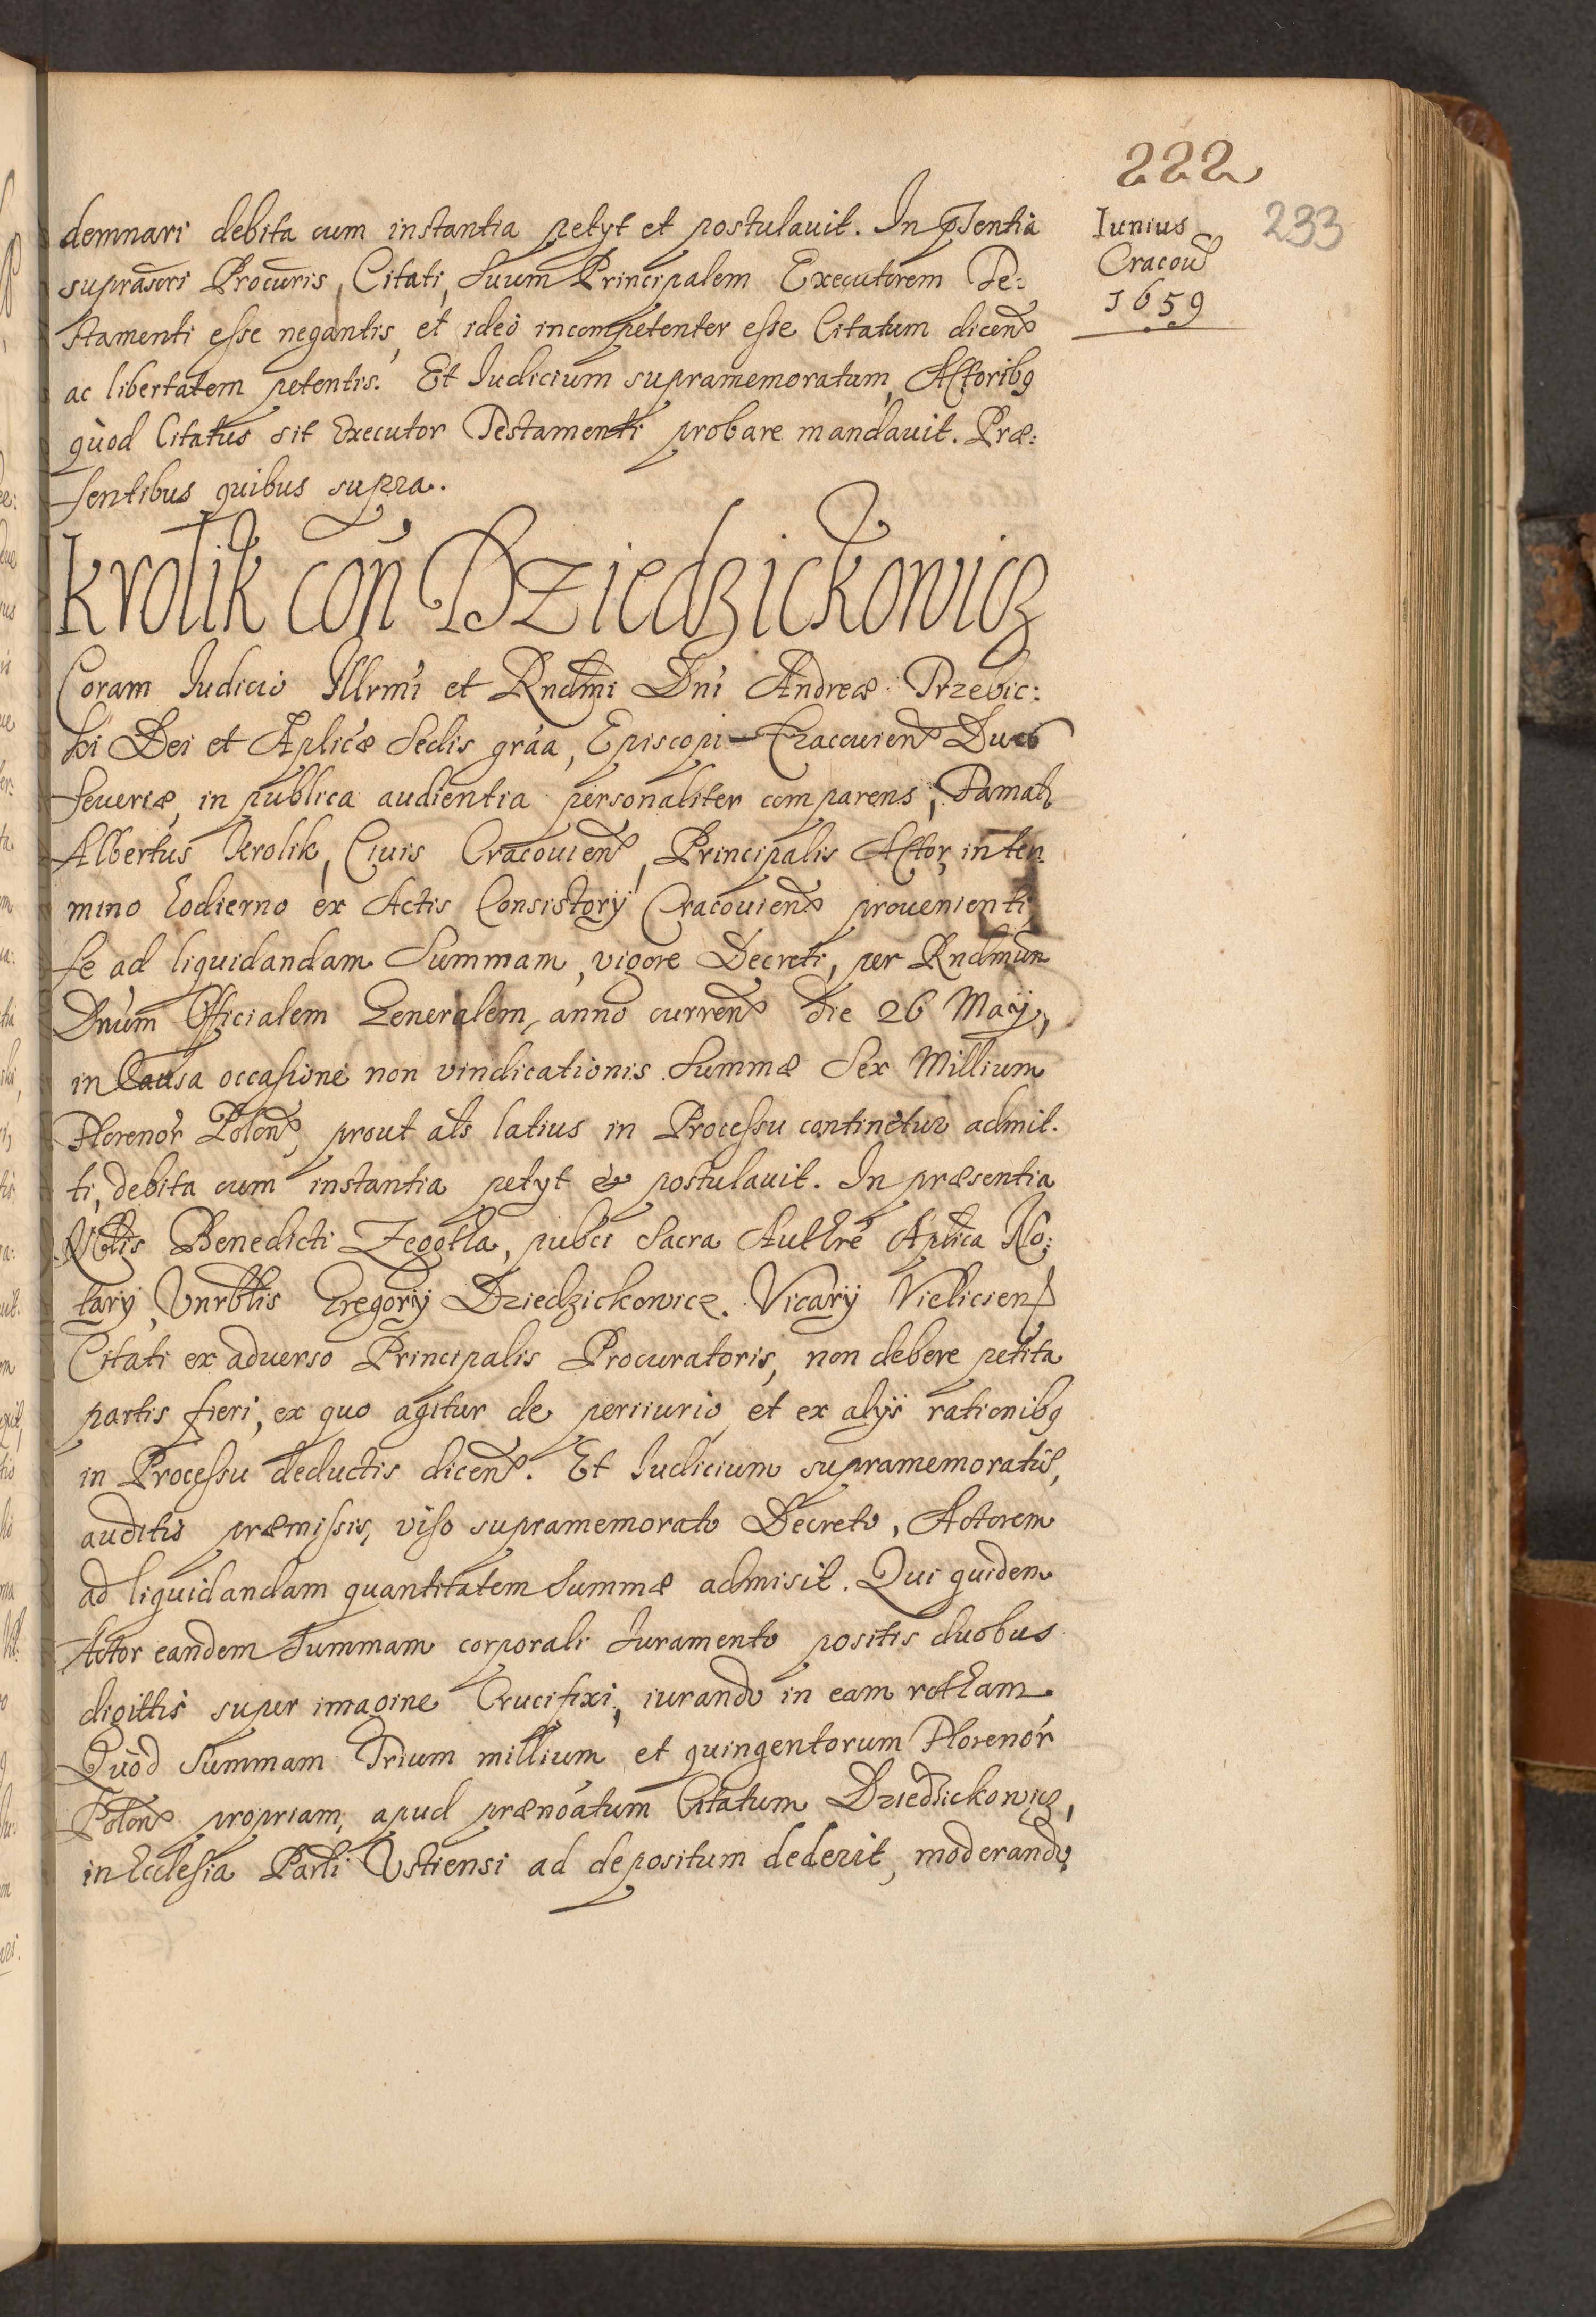 222
233
Iunius
Cracou
1659
demnari debita cum instantia petyt et postulauit. In pñsentia
suprascri Procuris, Citati, Suum Principalem Executorem Te:
stamenti esse negantis, et ideò incompetenter esse Citatum dicen
ac libertatem petentis. Et Iudicium supramemoratum, Actoribq
quòd Citatus sit Executor Testamenti probare mandauit. Præ:
sentibus quibus supra.
Krolik coñ Dziedzickowicz
Coram Iudicio Illrmi et Rndmi Dni Andreæ Trzebic:
ki Dei et Aplicæ Sedis gráa, Episcopi Cracouien Ducis
Seueriæ, in publica audientia personaliter comparens, Famat
Albertus Krolik, Ciuis Cracouien, Principalis Actor, in ter
mino hodierno ex Actis Consistorij Cracouien prouenienti
se ad liquidandam Summam, vigore Decreti, per Rndmum
Dnum Officialem Generalem, anno curren die 26 Maij,
in Causa occasione non vindicationis Summæ Sex Millium
Florenor Polon, prout als latius in Processu continetur admit.
ti, debita cum instantia petyt & postulauit. In præsentia
Nblis Benedicti Zegotla, pubci Sacra Authre Aplica No:
tarij, Vnrblis Gregorij Dziedzickowicz. Vicarij Vieliciens
Citati ex aduerso Principalis Procuratoris, non debere petita
partis fieri, ex quo agitur de periurio et ex alijs rationibq
in Processu deductis dicen. Et Iudicium supramemoratũ,
auditis præmissis, viso supramemorato Decreto, Actorem
ad liquidandam quantitatem Summæ admisit. Qui quidem
Actor eandem Summam corporali Iuramento positis duobus
digittis super imagine Crucifixi, iurando in eam rotham
Quòd Summam Trium millium et quingentorum Florenor
Polon propriam, apud prænoátum Citatum Dziedzickowicz,
in Ecclesia Parli Vstiensi ad depositum dederit, moderando